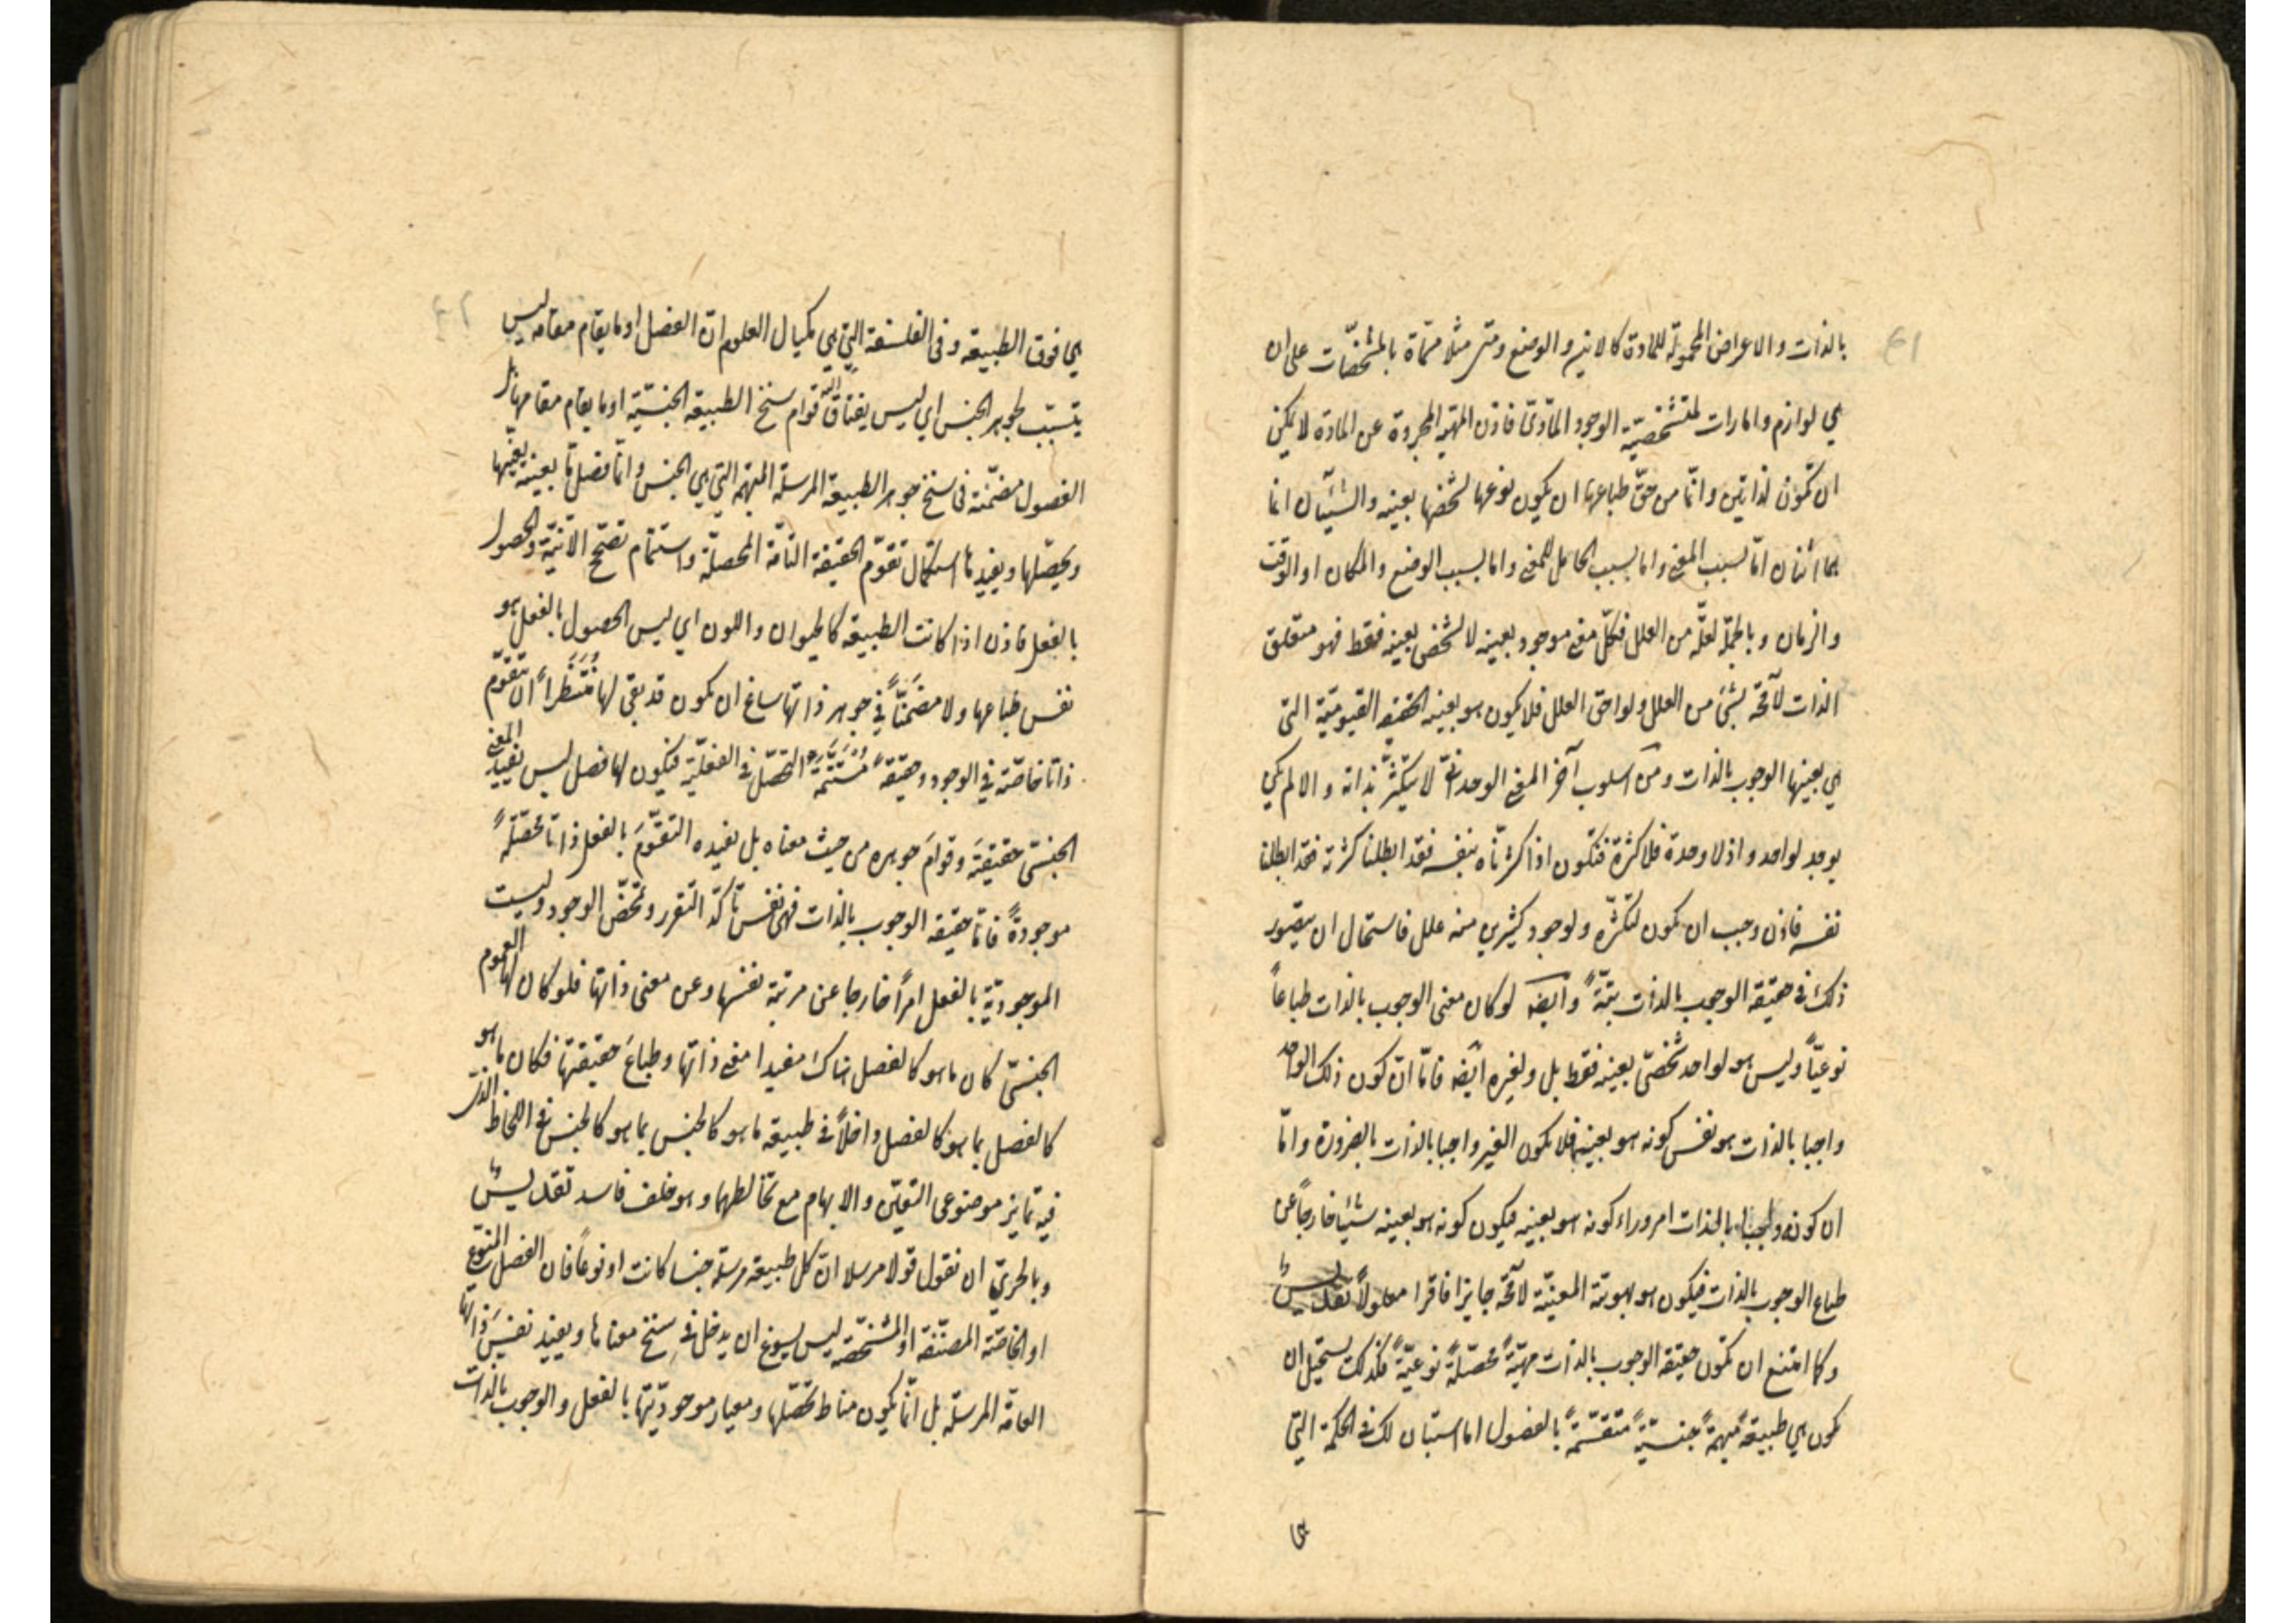 بالذات والاعراض المحمولة للمادة كالاين والوضع ومتى مثلا مسماة بالمشخصات على ان
هي لوازم وامارات لمتشخصية الوجود المادى فاذن المهية المجردة عن المادة لا يمكن
ان تكون لذاتين وانما من حق طباعها ان يكون نوعها لشخصها بعينه والشيئان انما
هما اثنان اما بسبب المعنى واما بسبب الحامل للمعنى واما بسبب الوضع والمكان او الوقت
والزمان وبالجملة لعلة من العلل فكل معنى موجود بعينه لا لشخص بعينه فقط فهو متعلق
الذات لامحة بشئ من العلل ولواحق العلل فلا يكون هو بعينه الحقيقة القيومية التى
هي بعينها الوجوب بالذات ومن اسلوب آخر المعنى الوحدانى لا يتكثر بذاته والا لم يكن
يوجد لواحد واذ لا وحدة فلا كثرة فتكون اذا كثرناه بنفسه فقد ابطلنا كثرته فقد ابطلنا
نفسه فاذن وجب ان يكون لتكثره ولوجود كثيرين منه علل فاستحال ان يتصور
ذلك فى حقيقة الوجوب بالذات بتة وايضا لو كان معنى الوجوب بالذات طباعاً
نوعيّاً وليس هو لواحد شخصىّ بعينه فقط بل ولغيره ايضا فامّا انّ كون ذلك الواحد
واجبا بالذات هو نفس كونه هو بعينه فلا يكون الغير واجبا بالذات بالضرورة وامّا
ان كونه واجبا بالذات امر وراء كونه هو بعينه فيكون كونه هو بعينه شيئا خارجاً عن
طباع الوجوب بالذات فيكون هو بهويته المعينة لامحة جايزا فاقرا معلولاً
وكما امتنع ان تكون حقيقة الوجوب بالذات مهيّةً محصّلةً نوعيّةً فكذلك يستحيل ان
تكون هي طبيعةً مبهمةً جنسيّةً متقسّمةً بالفصول اما استبان لك فى الحكمة التى
هي فوق الطبيعة وفى الفلسفة التى هي مكيال العلوم انّ الفصل او ما يقام مقامه ليس
يتسبب لجوهر الجنس اي ليس يفتاق اليه قوام سنخ الطبيعة الجنسيّة او ما يقام مقامها
الفصول مضمّنة فى سنخ جوهر الطبيعة المرسلة المبهمة التى هي الجنس وانما فصل ما بعينه يعيّنها
ويحصّلها ويفيدها استكمال تقوّم الحقيقة التامة المحصلّة واستتمام تصحّح الانيّة والحصول
بالفعل فاذن اذا كانت الطبيعة كالحيوان واللون اي ليس الحصول بالفعل هو
نفس طباعها ولا مضمّناً في جوهر ذاتها ساغ ان يكون قد بقى لها مُنتَظَراً ان تتقوّم
ذاتا خاصّة في الوجود وحقيقةً مُستَتمّة التحصّل فى الفعليّة فيكون لها فصل ليس يفيد المعنى
الجنسىّ حقيقيتَه وقوامَ جوهره من حيث معناه بل يفيده التقوّمَ بالفعل ذاتا محصّلةً
موجودةً فامّا حقيقة الوجوب بالذات فهى نفس تأكّد التقرر وتمحّض الوجود وليست
الموجوديّة بالفعل امراً خارجا عن مرتبة نفسها وعن معنى ذاتها فلو كان لها العموم
الجنسىّ كان ما هو كالفصل هناك مفيدا معنى ذاتها وطباعَ حقيقتها فكان ما هو
كالفصل بما هو كالفصل داخلاً فى طبيعة ما هو كالجنس بما هو كالجنس فى اللحاظ الذى
فيه تمايز موضوعى التعيّن والابهام مع تخالطهما وهو خلف فاسد
وبالحرىّ ان نقول قولا مرسلا ان كل طبيعة مرسلة جنسا كانت او نوعاً فان الفصل المنوّع
او الخاصّة المصنّفة او المشخّصة ليس يسوغ ان يدخل فى سنخ معناها ويفيد نفسَ ذاتها
العامّة المرسلة بل انّما يكون مناط تحصّلها ومعيار موجوديّتها بالفعل والوجوب بالذات